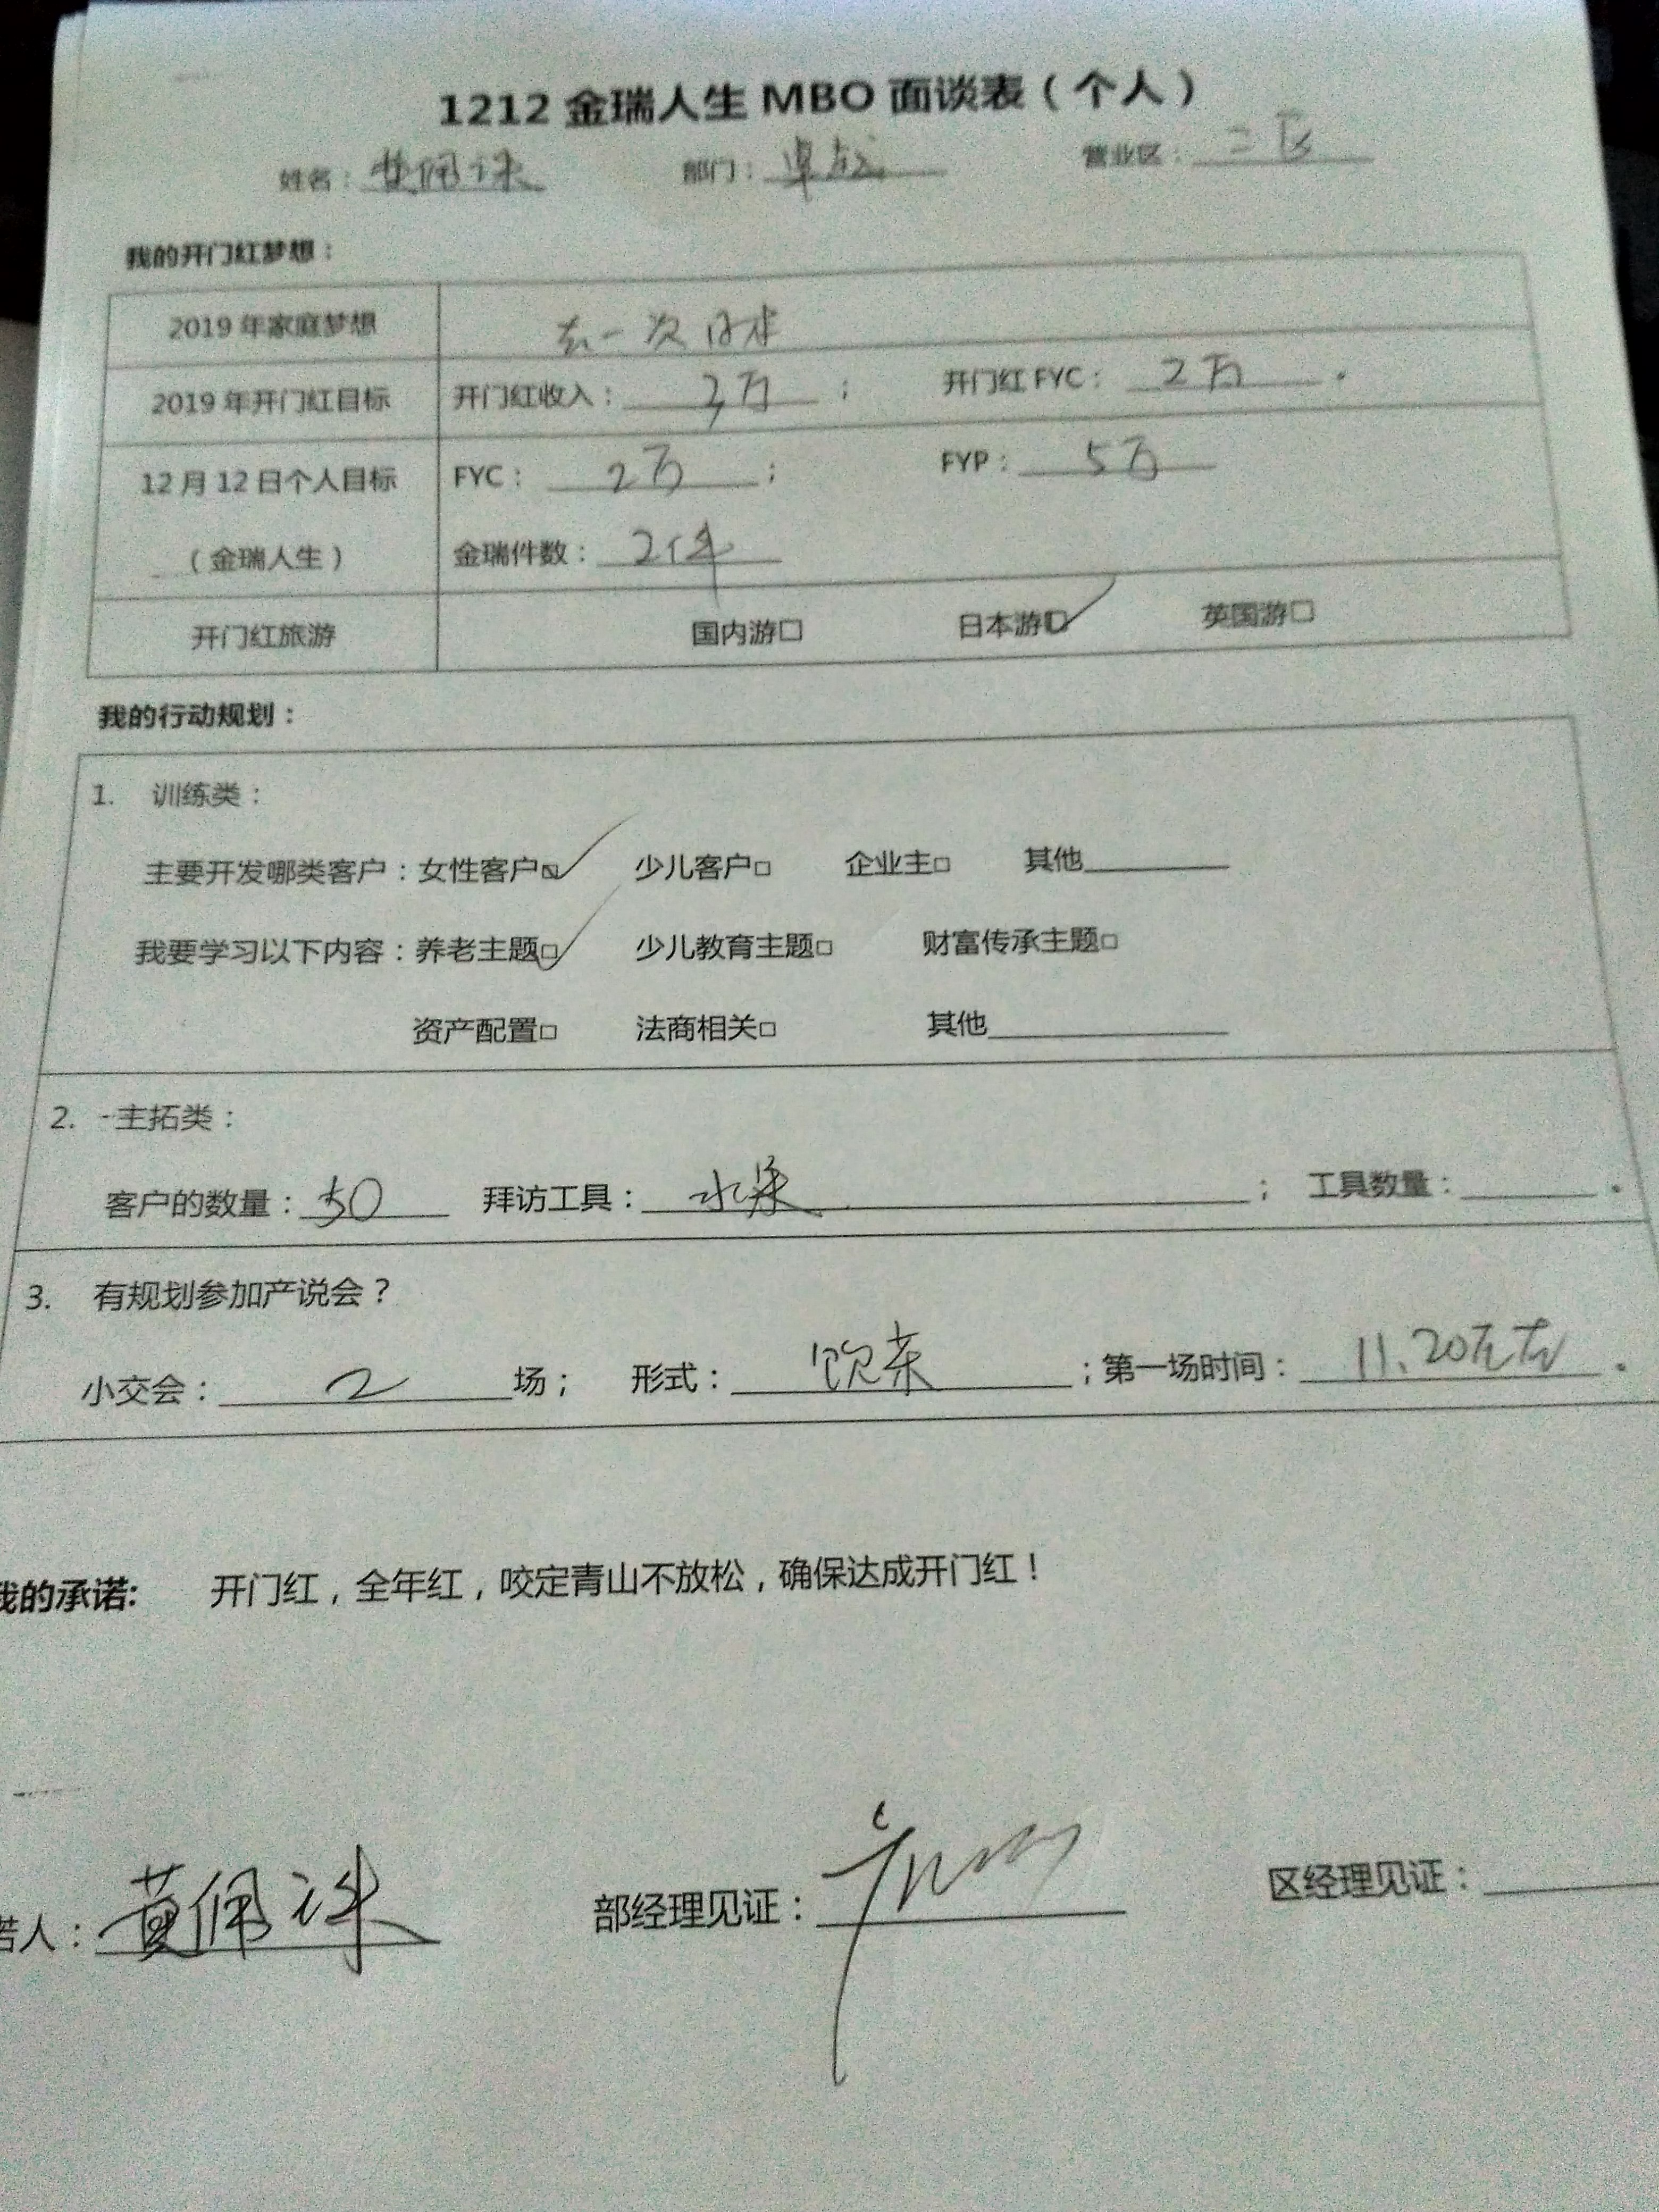 1212 金瑞人生 MBO 面谈表（个人）
姓名：黄佩珠 部门：卓越 营业区：二区
我的开门红梦想：
2019 年家庭梦想 去一次日本
2019 年开门红目标 开门红收入：3万； 开门红 FYC：2万。
12 月 12 日个人目标 FYC：2万； FYP：5万
（金瑞人生） 金瑞件数：2件
开门红旅游 国内游□ 日本游☑ 英国游□
我的行动规划：
1. 训练类：
主要开发哪类客户：女性客户☑ 少儿客户□ 企业主□ 其他
我要学习以下内容：养老主题☑ 少儿教育主题□ 财富传承主题□
资产配置□ 法商相关□ 其他
2. 主拓类：
客户的数量：50 拜访工具：水果； 工具数量：。
3. 有规划参加产说会？
小交会：2场； 形式：饮茶；第一场时间：11.20左右。
我的承诺: 开门红，全年红，咬定青山不放松，确保达成开门红！
诺人：黄佩珠 部经理见证： 区经理见证：